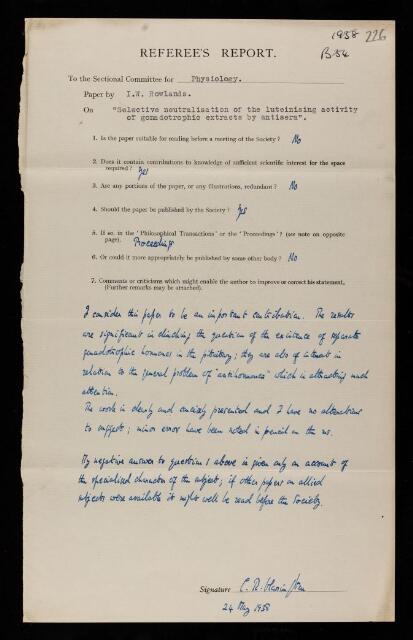 1938 226
B54
REFEREE'S REPORT.
To the Sectional Committee for Physiology.
Paper by I.W. Rowlands.
On "Selective neutralisation of the luteinising activity
of gonadotrophic extracts by antisera".
1. Is the paper suitable for reading before a meeting of the Society? No
2. Does it contain contributions to knowledge of sufficient scientific interest for the space
required? Yes
3. Are any portions of the paper, or any illustrations, redundant? No
4. Should the paper be published by the Society? Yes
5. If so, in the 'Philosophical Transactions' or the 'Proceedings'? (see note on opposite
page). Proceedings
6. Or could it more appropriately be published by some other body? No
7. Comments or criticisms which might enable the author to improve or correct his statement.
(Further remarks may be attached).
I consider this paper to be an important contribution. The results
are significant in clinching the question of the existence of separate
gonadotrophic hormones in the pituitary; they are also of interest in
relation to the general problem of "antihormones" which is attracting much
attention.
The work is clearly and concisely presented and I have no alterations
to suggest; minor errors have been noted in pencil on the ms.
My negative answer to question 1 above is given only on account of
the specialised character of the subject; if other papers on allied
subjects were available it might well be read before the Society.
Signature C. R. Harington
24 May 1938